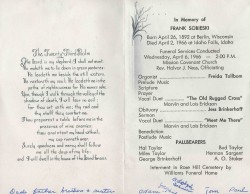 The Twenty-Third Psalm
The Lord is my shepherd; I shall not want.
He maketh me to lie down in green pastures:
He leadeth me beside the still waters.
He restoreth my soul:
He leadeth me in the paths of righteousness
for His name's sake.
Yea, though I walk through the valley of the
shadow of death, I will fear no evil:
for thou art with me; thy rod and
thy staff they comfort me.
Thou preparest a table before me in the
presence of mine enemies:
thou anointest my head with oil;
my cup runneth over.
Surely goodness and mercy shall follow me
all the days of my life: and
I will dwell in the house of the Lord forever.
In Memory of
FRANK SOBIESKI
Born April 26, 1892 at Berlin, Wisconsin
Died April 2, 1966 at Idaho Falls, Idaho
Funeral Services Conducted
Wednesday, April 6, 1966 - 3:00 P.M.
Mission Covenant Church
Rev. Halver J. Ness, Officiating
Organist Freida Tollbom
Prelude Music
Scripture
Prayer
Vocal Duet "The Old Rugged Cross"
Marvin and Lois Erickson
Obituary Joe Brinkerhoff
Sermon
Vocal Duet "Meet Me There"
Marvin and Lois Erickson
Benediction
Postlude Music
PALLBEARERS
Hal Taylor Rod Taylor
Miles Taylor Horace Sargent
George Brinkerhoff A. O. Staker
Interment in Rose Hill Cemetery by
Williams Funeral Home